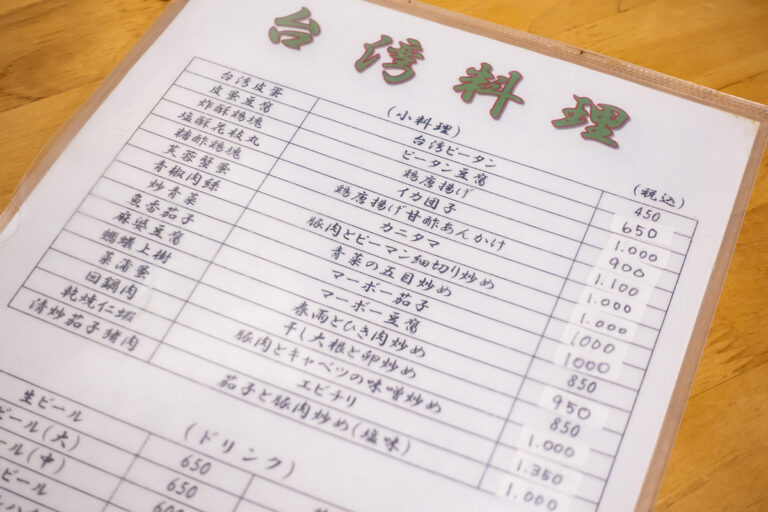 台湾料理
(小料理) (税込)
台湾皮蛋 台湾ピータン 450
皮蛋豆腐 ピータン豆腐 650
炸酥鶏塊 鶏唐揚げ 1.000
塩酥花枝丸 イカ団子 900
糖酢鶏塊 鶏唐揚げ甘酢あんかけ 1.100
芙蓉蟹蛋 カニタマ 1.000
青椒肉絲 豚肉とピーマン細切り炒め 1.000
炒青菜 青菜の五目炒め 1000
魚香茄子 マーボー茄子 1000
麻婆豆腐 マーボー豆腐 850
螞蟻上樹 春雨とひき肉炒め 950
菜蒲蛋 干し大根と卵炒め 850
回鍋肉 豚肉とキャベツの味噌炒め 1.000
乾焼仁蝦 エビチリ 1.350
清炒茄子猪肉 茄子と豚肉炒め(塩味) 1.000
(ドリンク)
生ビール 650
ビール(大) 650
ール(中) 600
ビール